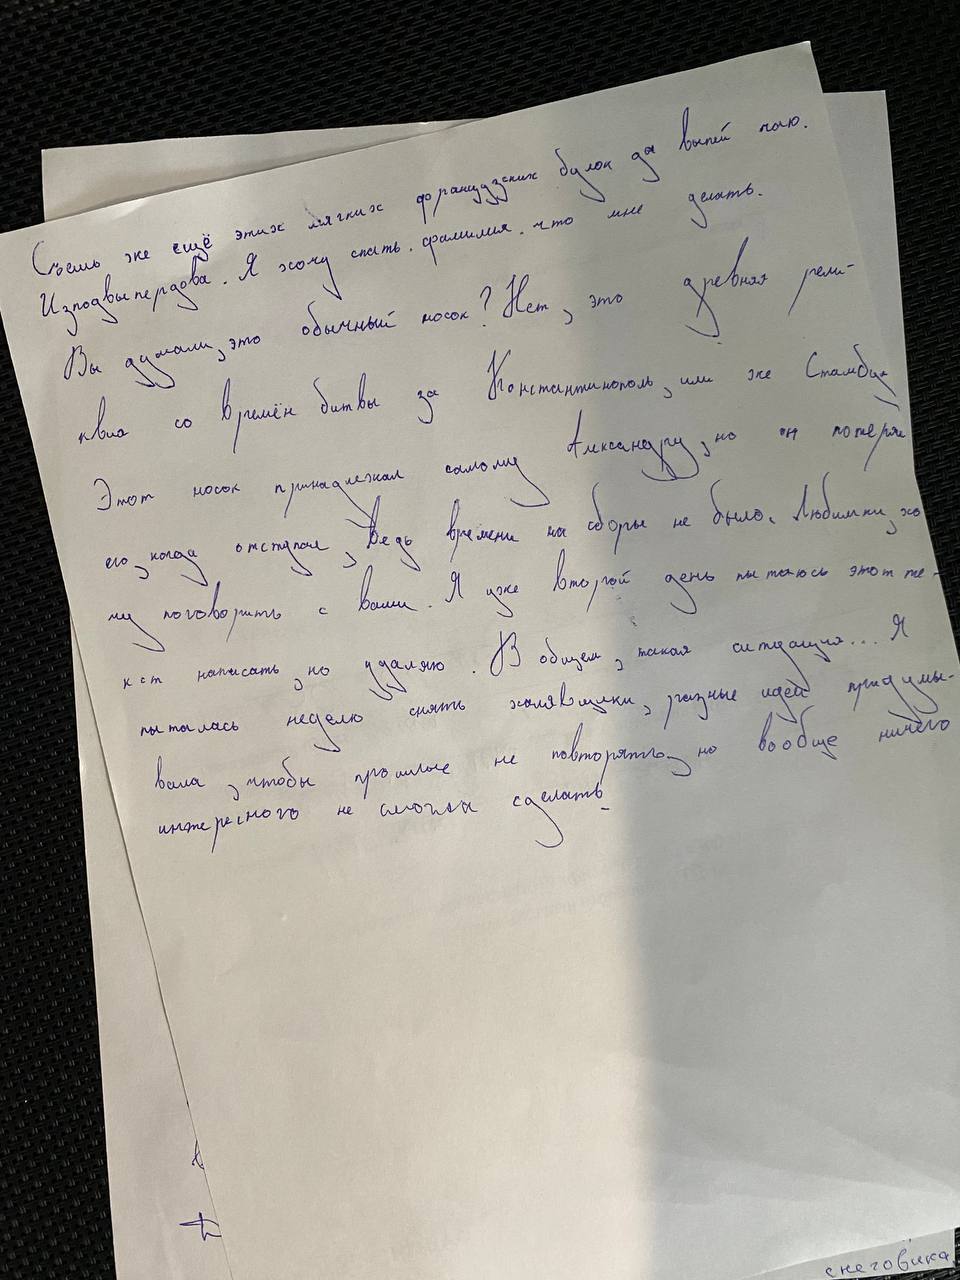 Съешь же ещё этих мягких французских булок да выпей чаю.
Изподвыпердова. Я хочу спать. фамилия. что мне делать.
Вы думали, это обычный носок? Нет, это древняя рели-
квия со времён битвы за Константинополь, или же Стамбул
Этот носок принадлежал самому Александру, но он потерял
его, когда отступал, ведь времени на сборы не было. Любимки, хо
чу поговорить с вами. Я уже второй день пытаюсь этот те-
кст написать, но удаляю. В общем, такая ситуация... Я
пыталась неделю снять халявщики, разные идеи придумы-
вала, чтобы прошлые не повторять, но вообще ничего
интересного не смогла сделать
снеговика